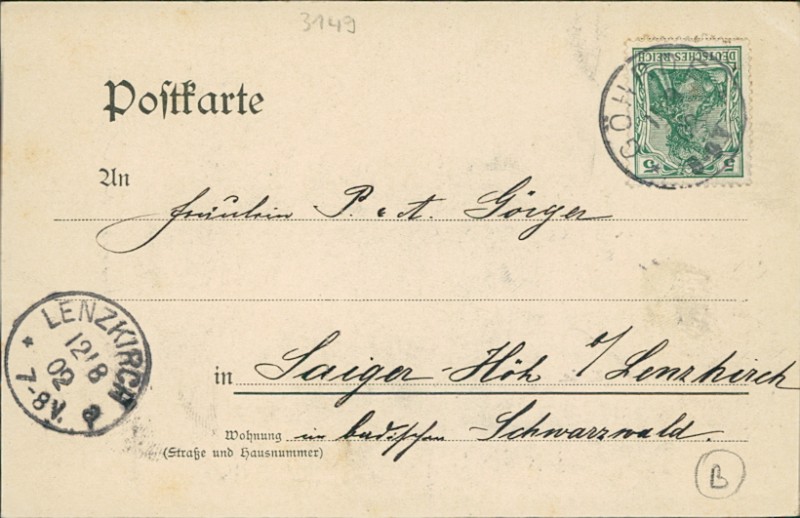 3149
Postkarte
DEUTSCHES REICH
5 5
An
Fräulein P. & A. Görger
LENZKIRCH
12/8
02
7-8V. a
in Saiger-Höh b/Lenzkirch
Wohnung im badischen Schwarzwald.
(Straße und Hausnummer)
B